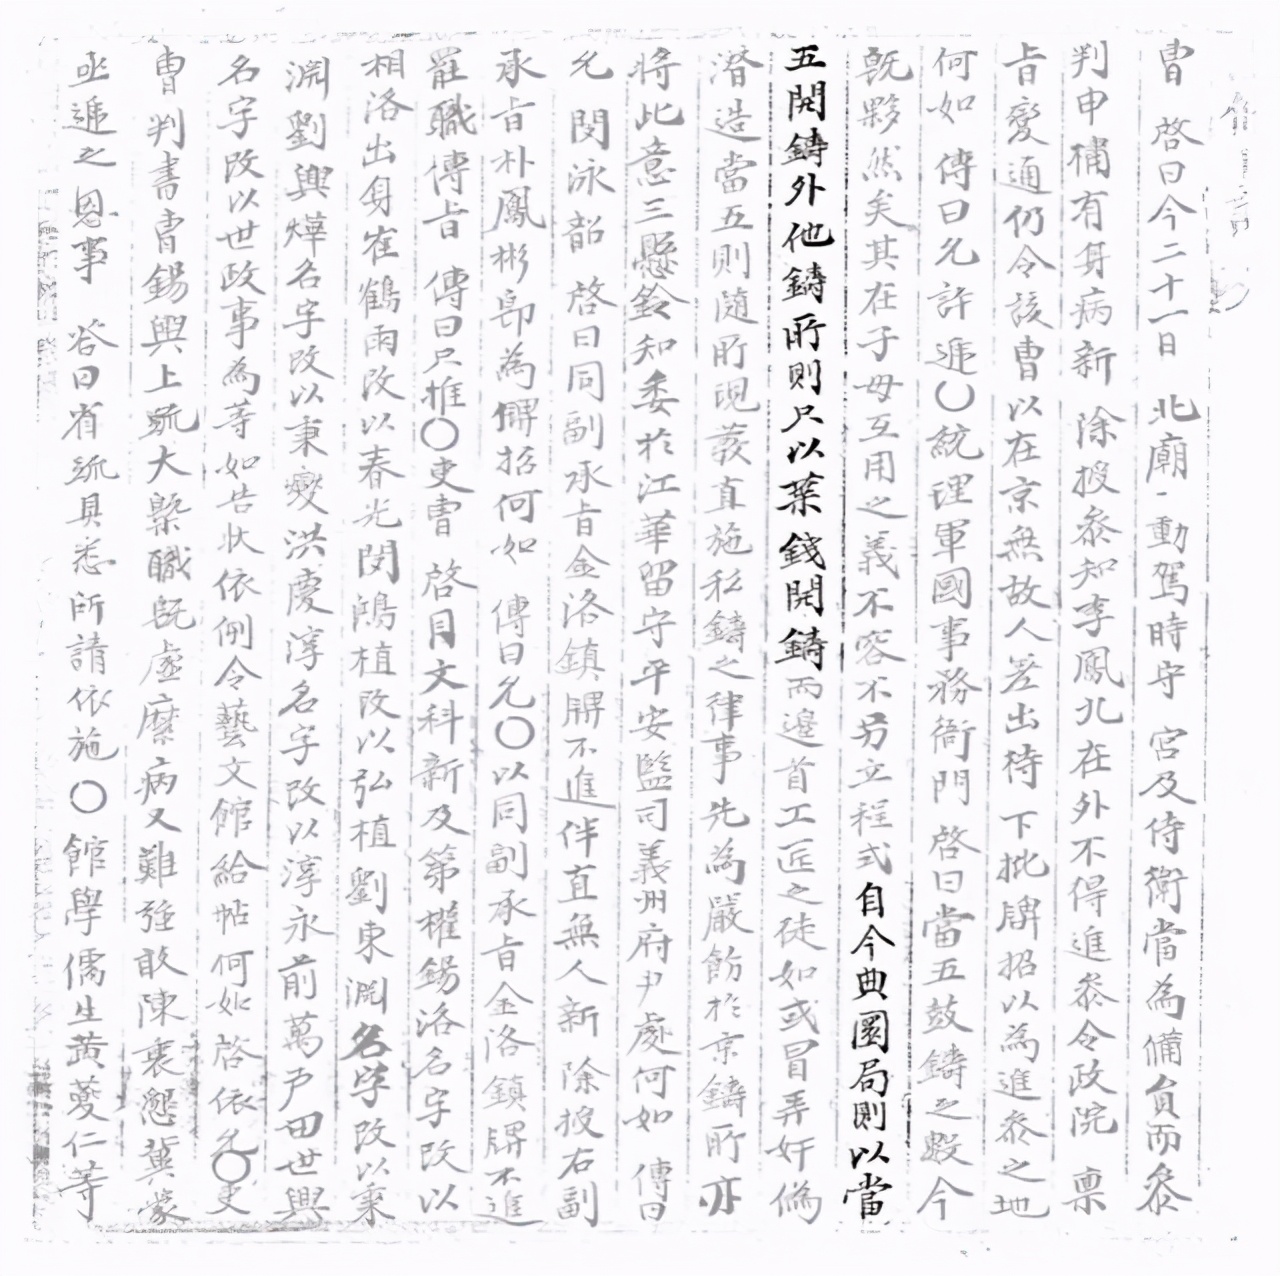 曺 啓曰今二十一日 北廟 動駕時守 宮及侍衛當爲備負而叅
判申橚有身病新 除授叅知李鳳九在外不得進叅令政院 禀
旨變通仍令該曺以在京無故人差出待 下批牌招以爲進叅之地
何如 傳曰允許遞○統理軍國事務衙門 啓曰當五鼓鑄之毀今
旣夥然矣其在子母互用之義不容不另立程式自今典圜局則以當
五開鑄外他鑄所則只以葉錢開鑄而邊首工匠之徒如或冒弄奸僞
潛造當五則隨所現發直施私鑄之律事先爲嚴飭於京鑄所亦
將此意三懸鈴知委於江華留守平安監司義州府尹處何如 傳曰
允 閔泳韶 啓曰同副承旨金洛鎭牌不進伴直無人新 除授右副
承旨朴鳳彬卽爲牌招何如 傳曰允○以同副承旨金洛鎭牌不進
罷職傳旨 傳曰只推○吏曺 啓目文科新及第權錫洛名字改以
相洛出身崔鶴雨改以春光閔鴻植改以弘植劉東淵名字改以秉
淵劉興燁名字改以秉燮洪慶淳名字改以淳永前萬戶田世興
名字改以世政事爲等如告狀依例令藝文館給帖何如 啓依允○吏
曺判書曺錫輿上疏大槩職旣虛縻病又難强敢陳衷懇冀蒙
亟遞之 恩事 答曰省疏具悉所請依施○館學儒生黃蘷仁等